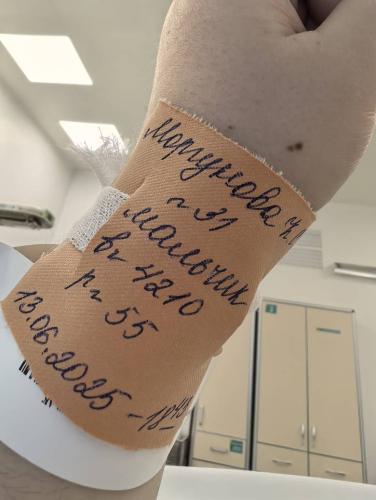 Моргунова Ч.
г 31
мальчик
вг 4210
рг 55
13.06.2025 - 18 45